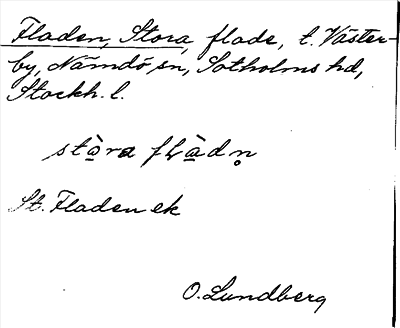 Fladen, Stora, flade, t. Väster-
by, Nämdö sn, Sotholms hd,
Stockh. l.
stàra flàdn̥
St. Fladen ek
O. Lundberg